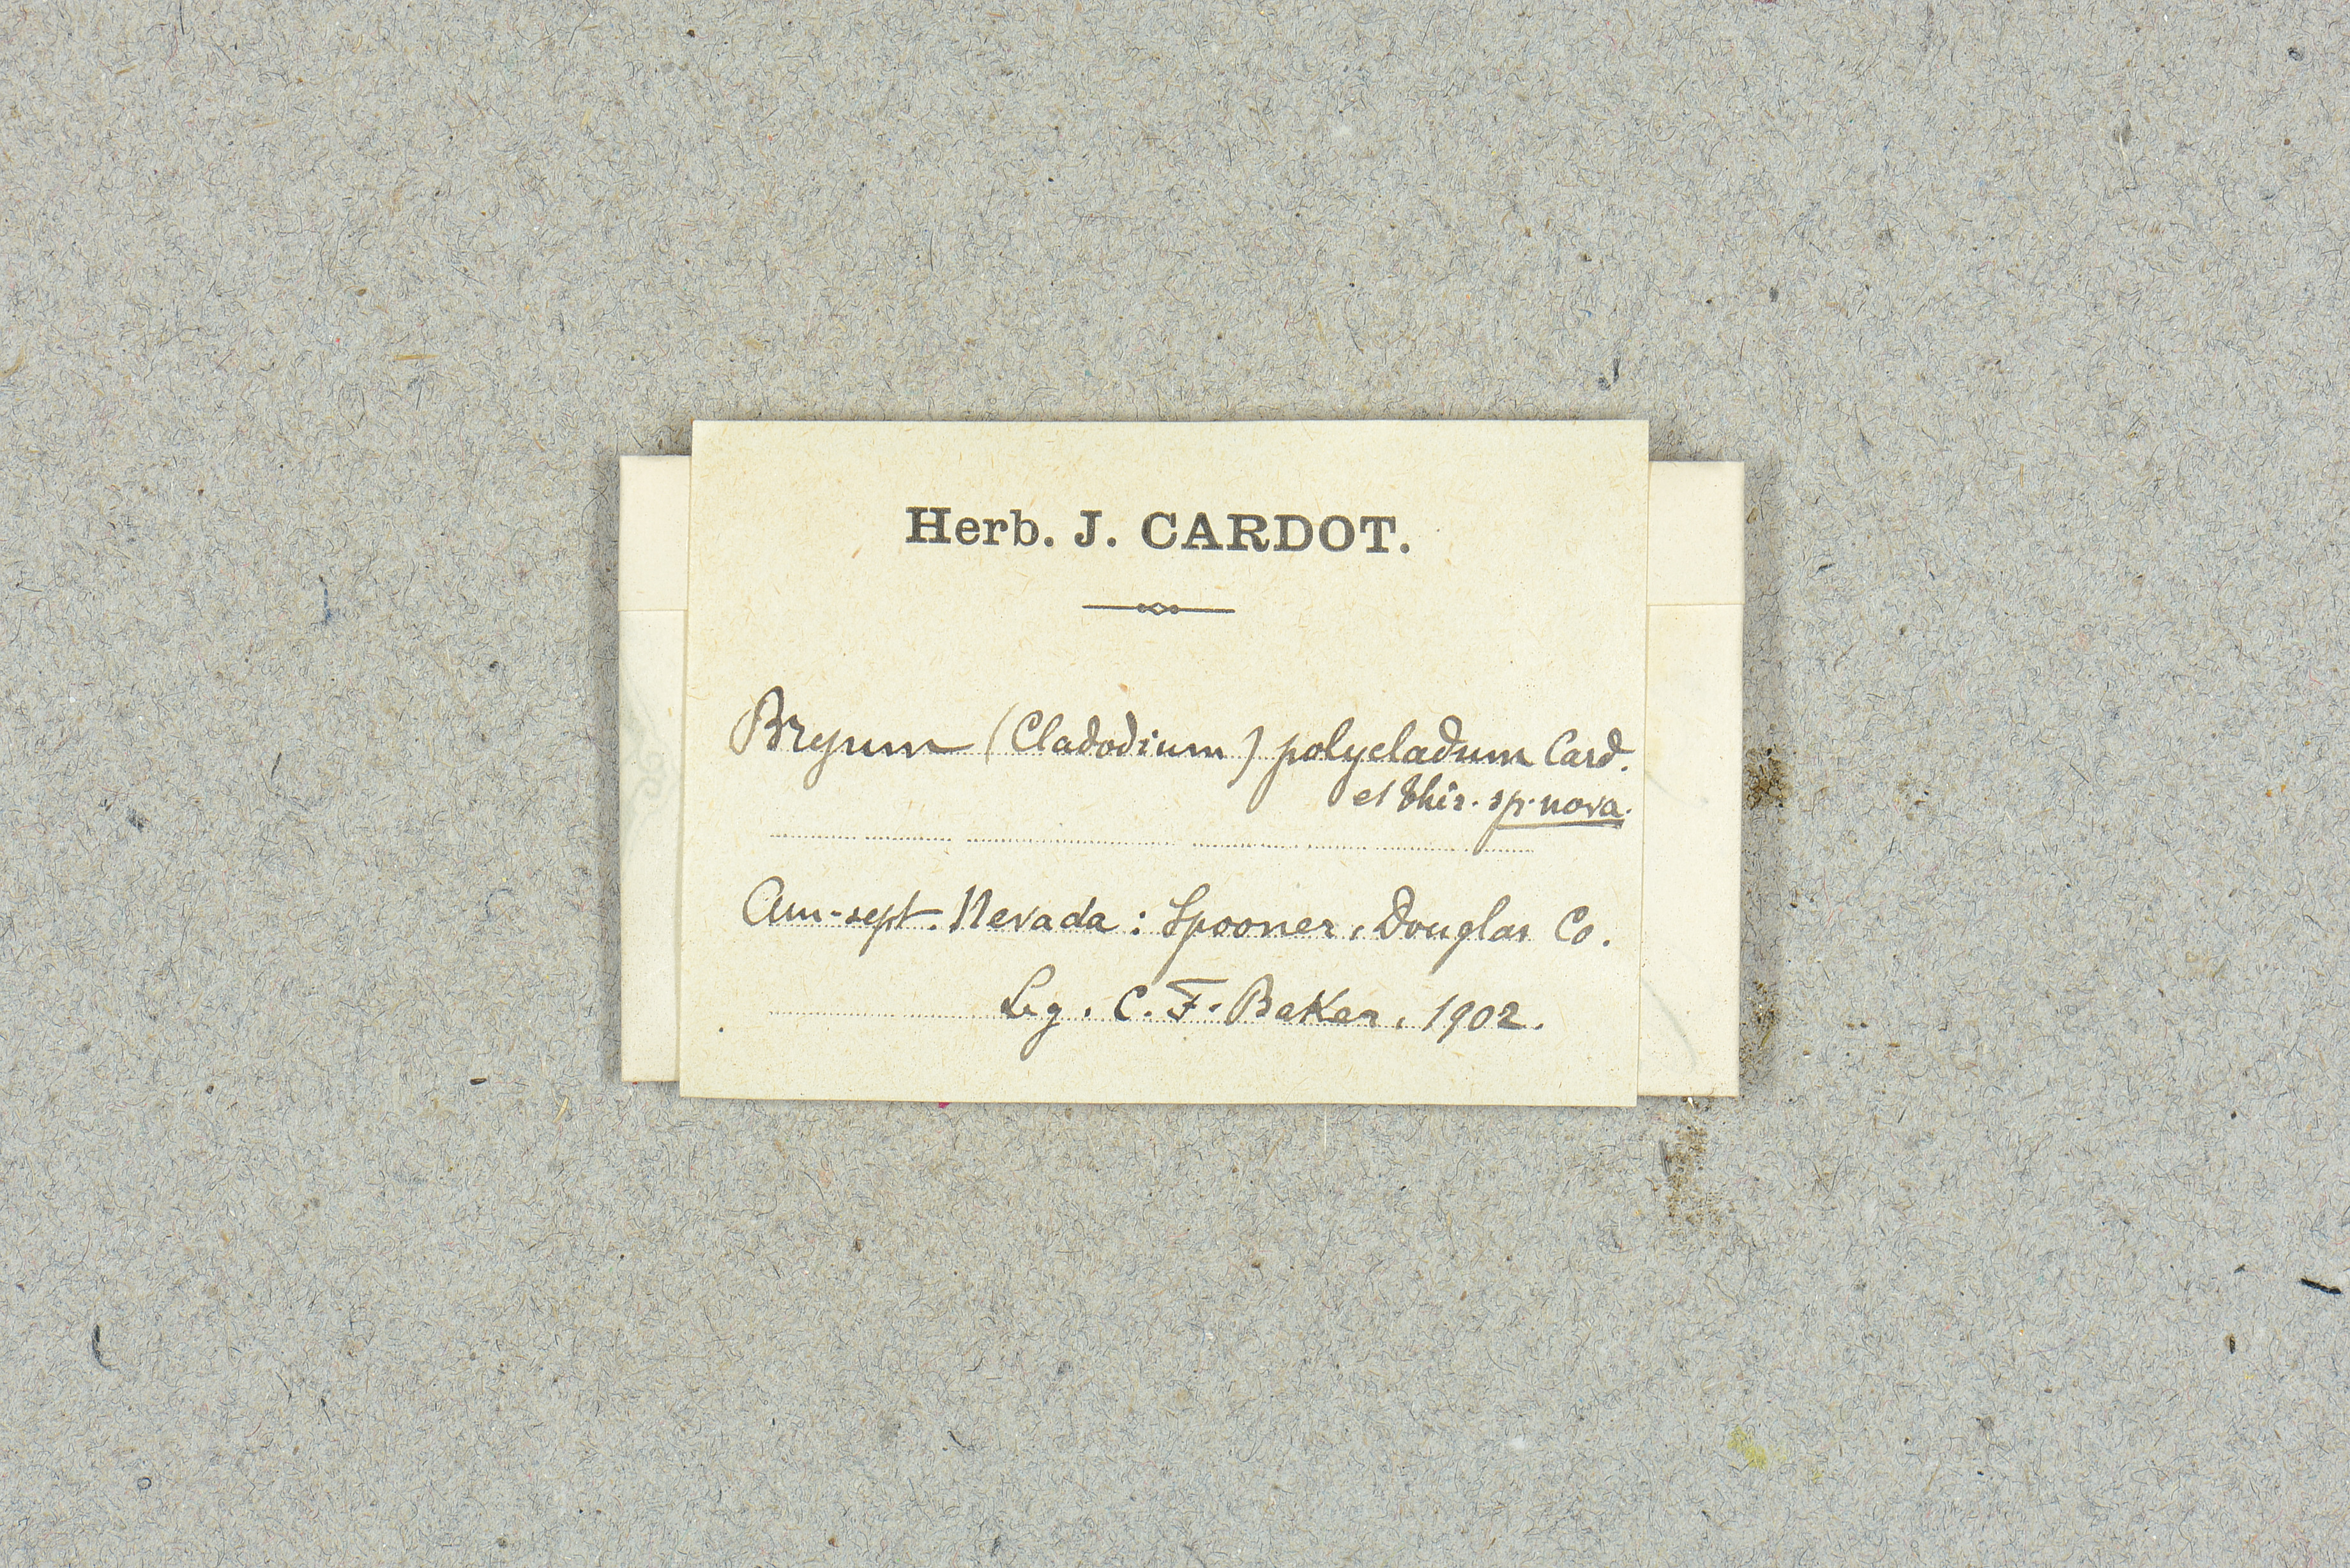 Herb. J. CARDOT.
Bryum (Cladodium) polycladum Card.
et Thér. sp. nova.
Am-sept. Nevada: Spooner, Douglas Co.
Leg. C. F. Baker, 1902.